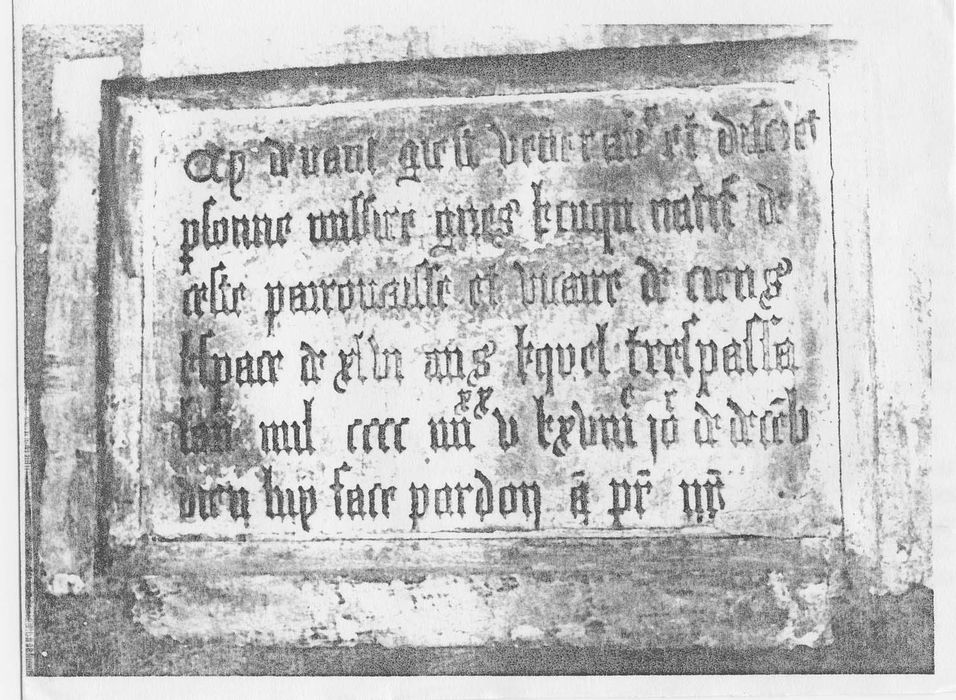 Cy devant gist venerab et discret
psonne missire gilles lcuqu natif de
ceste parrouaisse et vicaire de ciens
lespace de xlvi ans lequel trespassa
lan mil cccc iiii xx v le xviii jor de deceb
dieu luy face pardon a pr nr